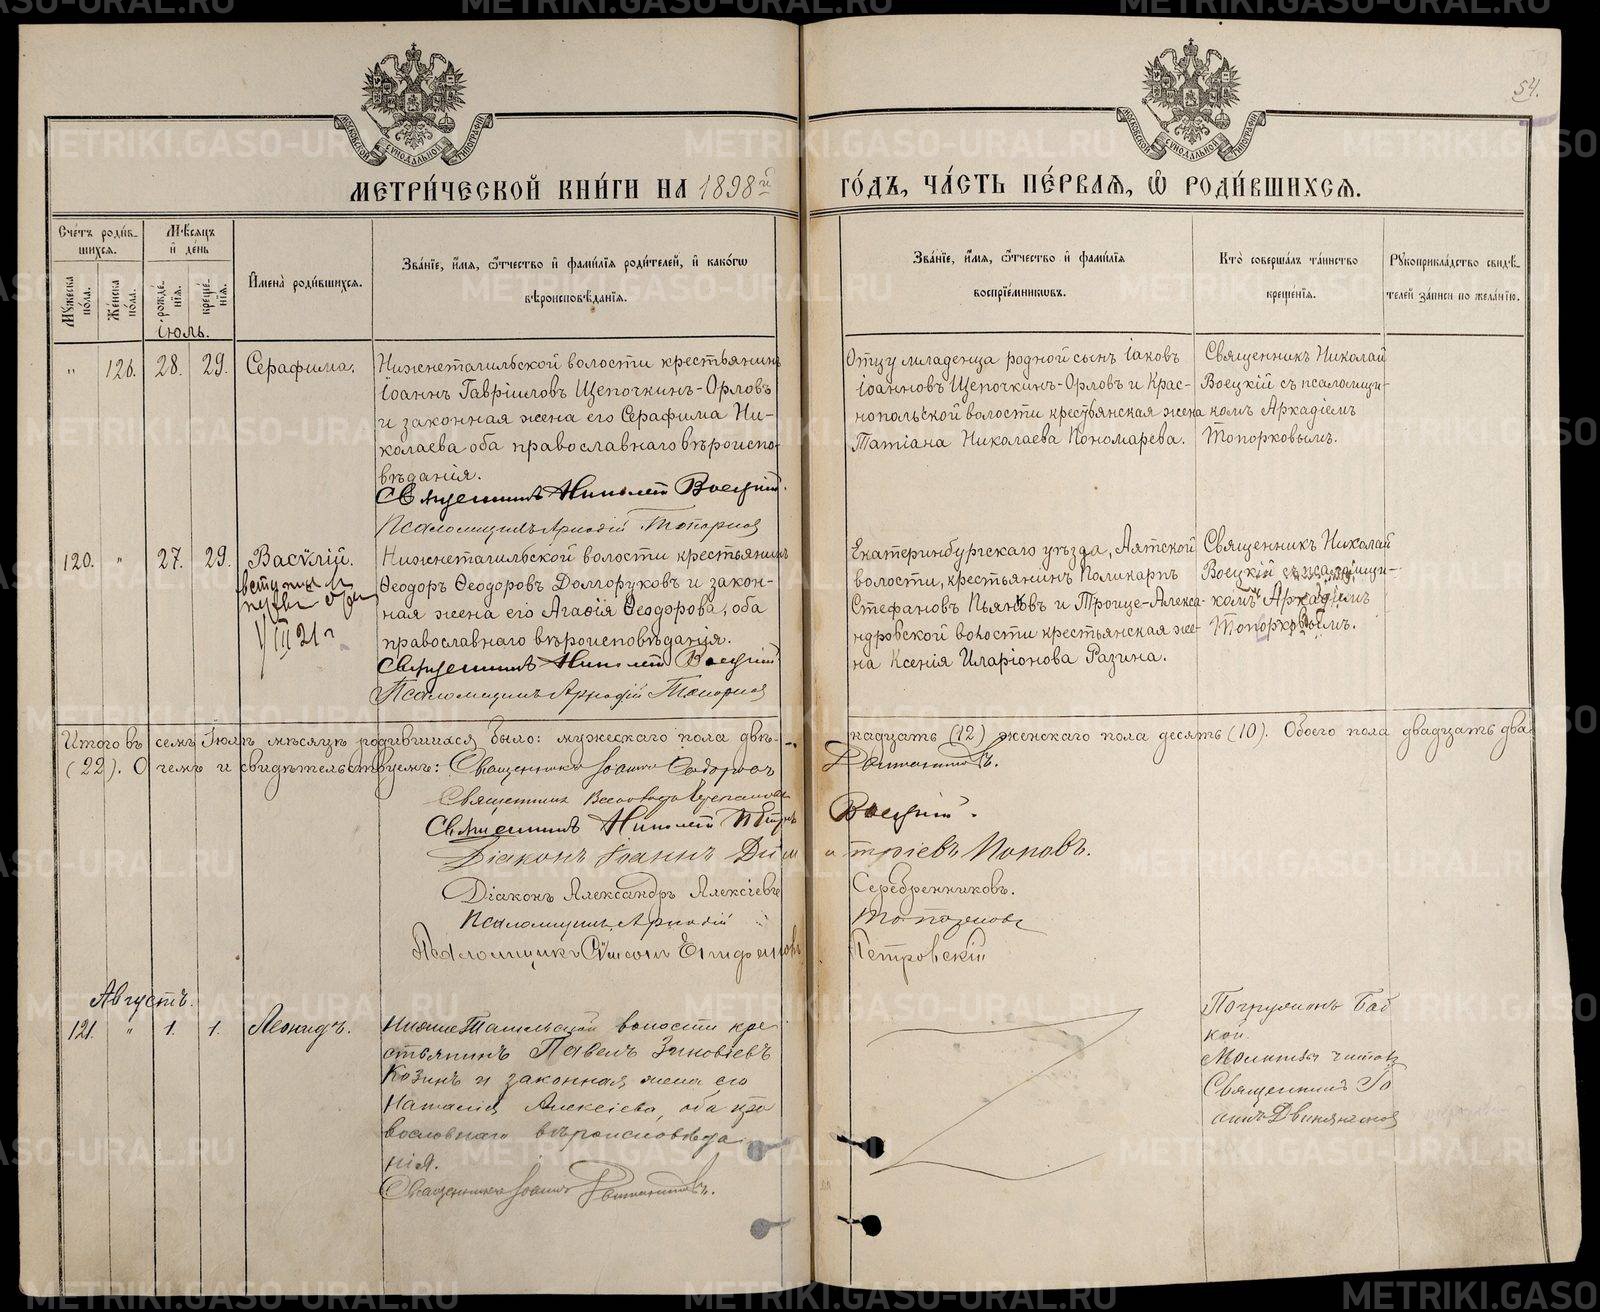 54.
МЕТРИ́ЧЕСКОЙ КНИ́ГИ НА 1898й
ГО́ДЪ, ЧА́СТЬ ПЕ́РВАЯ, Ѡ҆ РОДИ́ВШИХСЯ.
Сче́тъ роди́в-
шихся.
Мꙋжеска по́ла.
Же́нска по́ла.
Мѣ́сяцъ и҆ де́нь
рожде́нїя.
креще́нїя.
Имена̀ роди́вшихся.
Зва́нїе, и҆́мя, ѻ҆́тчество и҆ фами́лїя роди́телей, и҆ како́гѡ
вѣроисповѣ́данїя.
Зва́нїе, и҆́мя, ѻ҆́тчество и҆ фами́лїя
воспрїе́мникѡвъ.
Кто̀ соверша́лъ та́инство
креще́нїя.
Рꙋкоприкла́дство свидѣ́-
телей за́писи по жела́нїю.
Іюль.
" 126. 28. 29. Серафима.
Нижнетагильской волости крестьянинъ
Іоаннъ Гавріиловъ Щепочкинъ-Орловъ
и законная жена его Серафима Ни-
колаева оба православнаго вѣроиспо-
вѣданія.
Священникъ Николай Воецкій.
Псаломщикъ Аркадій Топорков
Отцу младенца родной сынъ Іаковъ
Іоанновъ Щепочкинъ-Орловъ и Крас-
нопольской волости крестьянская жена
Татіана Николаева Пономарева.
Священникъ Николай
Воецкій съ псаломщи-
комъ Аркадіемъ
Топорковымъ.
120. " 27. 29. Васѵлій.
VIII 21 г
Нижнетагильской волости крестьянинъ
Ѳеодоръ Ѳеодоровъ Долгоруковъ и закон-
ная жена его Агаѳія Ѳеодорова, оба
православнаго вѣроисповѣданія.
Священникъ Николай Воецкій
Псаломщикъ Аркадій Топорков
Екатеринбургскаго уѣзда, Аятской
волости, крестьянинъ Поликарпъ
Стефановъ Пьянковъ и Троице-Алекса-
ндровской волости крестьянская же-
на Ксенія Иларіонова Разина.
Священникъ Николай
Воецкій съ псаломщи-
комъ Аркадіемъ
Топорковымъ.
Итого въ семъ Іюлѣ мѣсяцѣ родившихся было: мужескаго пола двѣ-
надцать (12) женскаго пола десять (10). Обоего пола двадцать два
(22). О чемъ и свидѣтельствуемъ: Священникъ Іоаннъ
Священникъ
Священникъ Николай Воецкій.
Діаконъ Іоаннъ Димитріевъ Поповъ.
Діаконъ Александръ Алексіевъ Серебренниковъ.
Псаломщикъ Аркадій Топорков
Псаломщикъ Сѵмеонъ Епифановъ Петровскій
Августъ.
121. " 1. 1. Леонидъ.
НижнеТагильской волости кре
стьянинъ Павелъ Зиновіевъ
Козинъ и законная жена его
Наталія Алексіева, оба пра
вославнаго вѣроисповѣда
нія.
Священникъ Іоаннъ
Погружонъ Баб
кой.
Молитвы читалъ
Священникъ Іо
аннъ